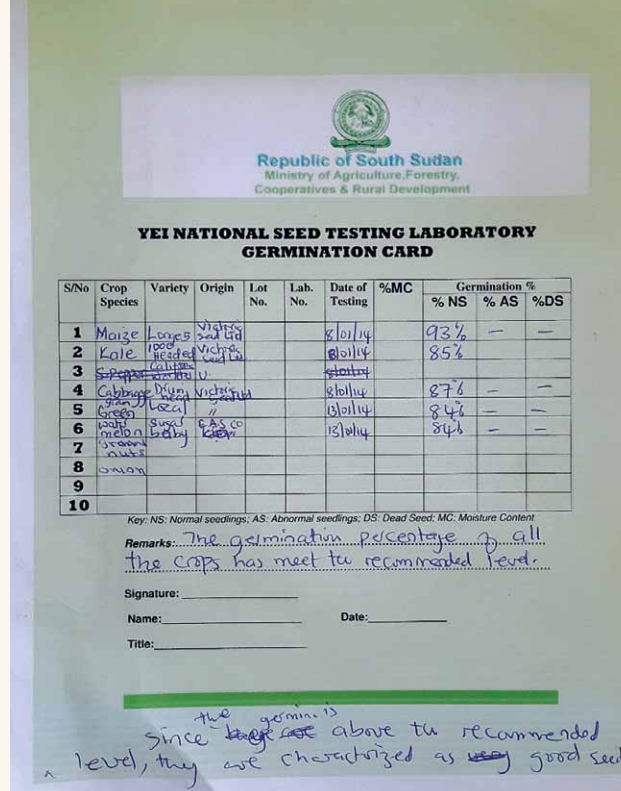 Republic of South Sudan
Ministry of Agriculture,Forestry,
Cooperatives & Rural Development
YEI NATIONAL SEED TESTING LABORATORY
GERMINATION CARD
S/No Crop Species Variety Origin Lot No. Lab. No. Date of Testing %MC Germination %
% NS % AS %DS
1 Maize Longe5 Victoria Seed Ltd 8/01/14 93% — —
2 Kale 1000 Headed Victoria Seed Ltd 8/01/14 85%
3 S.Pepper
4 Cabbage Drum head 8/01/14 87% — —
5 Green Local " 13/01/14 84% — —
6 melon Sugar baby 13/01/14 84% — —
7 nuts
8 onion
9
10
Key: NS: Normal seedlings; AS: Abnormal seedlings; DS: Dead Seed; MC: Moisture Content
Remarks: The germination percentage of all
the crops has meet the recommended level.
Signature:
Name: Date:
Title:
the germin. is
since above the recommended
level, they are charactrized as good seed